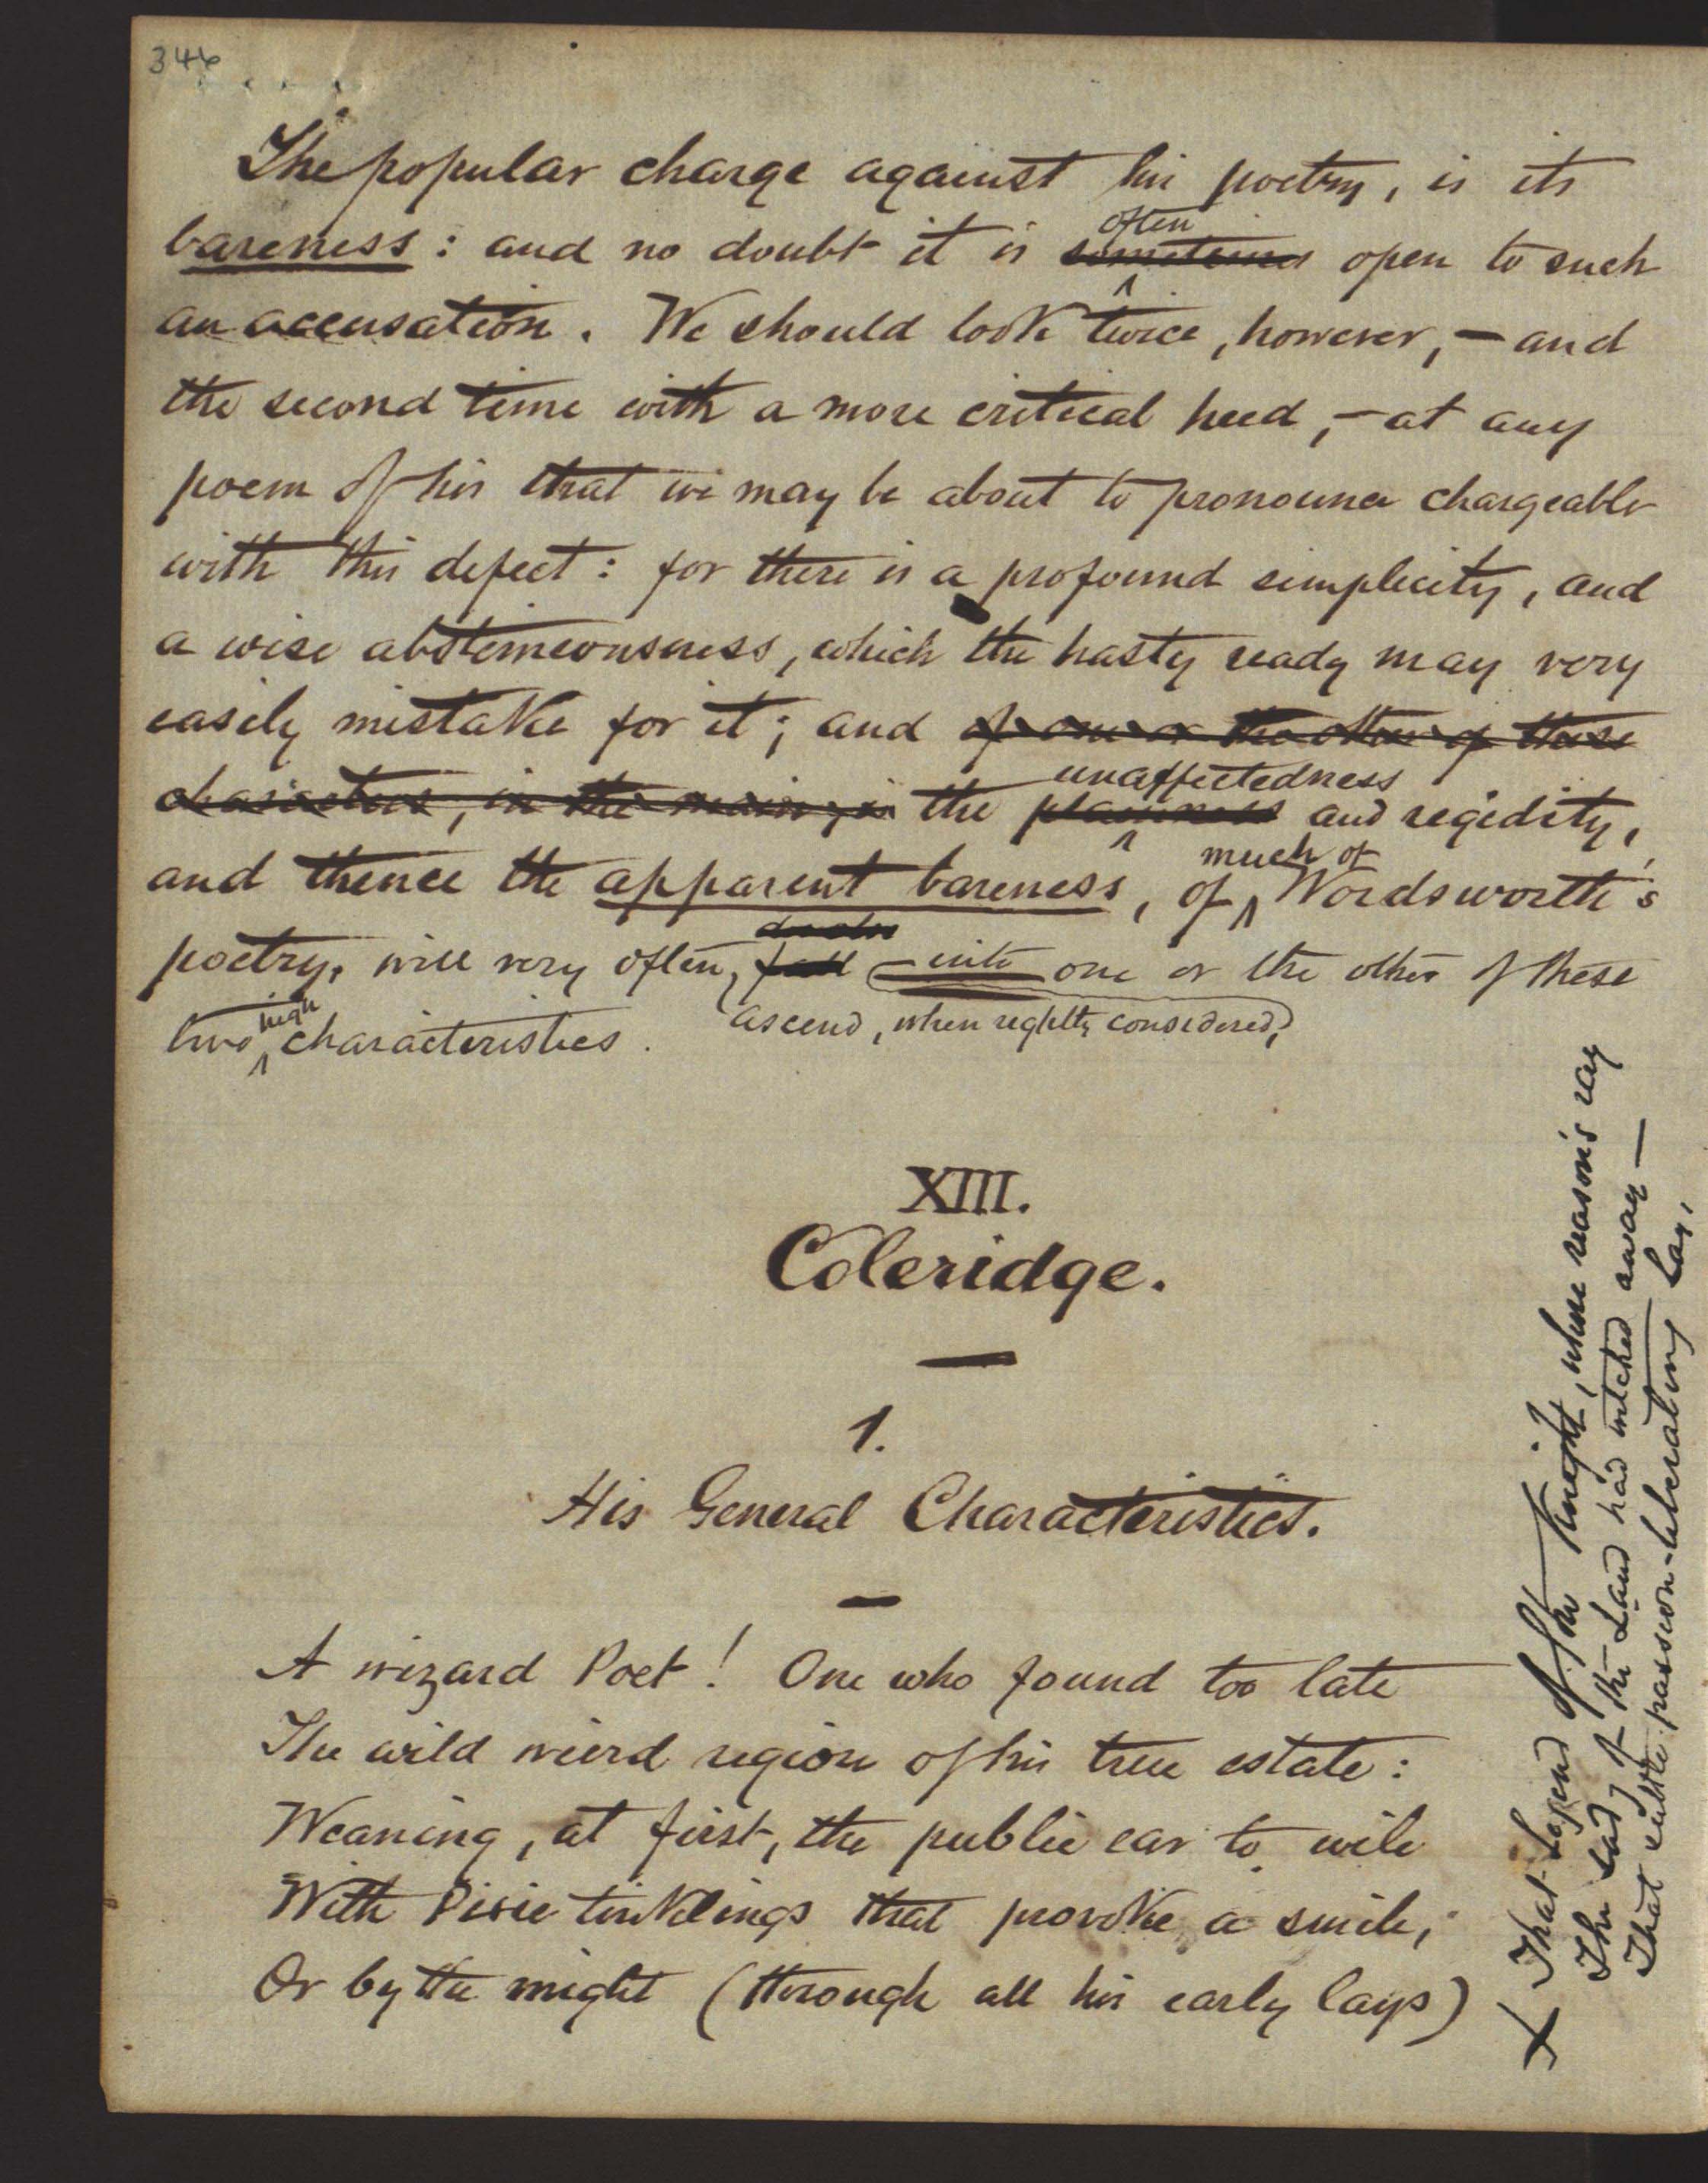 346
The popular charge against his poetry, is its
bareness: and no doubt it is sometimes often open to such
an accusation. We should look twice, however, — and
the second time with a more critical heed, — at any
poem of his that we may be about to pronounce chargeable
with this defect: for there is a profound simplicity, and
a wise abstemeousness, which the hasty ready may very
easily mistake for it; and of one or the other of these
characters, in the main, is the plainness unaffectedness and regidity,
and thence the apparent bareness, of much of Wordsworth's
poetry, will very often, fall ascend, when reghtly considered, into one or the other of these
two high characteristics.
XIII.
Coleridge.
1.
His General Characteristics.
A wizard Poet! One who found too late
The wild weird region of his true estate:
Weaning, at first, the public ear to wile
With Pixie tinklings that provoke a smile,
Or by the might (through all his early lays)
X That Legend of the Knight, whose reason's ray
The Lady of the Land had witched away —
That subtle passion-liberating Lay,